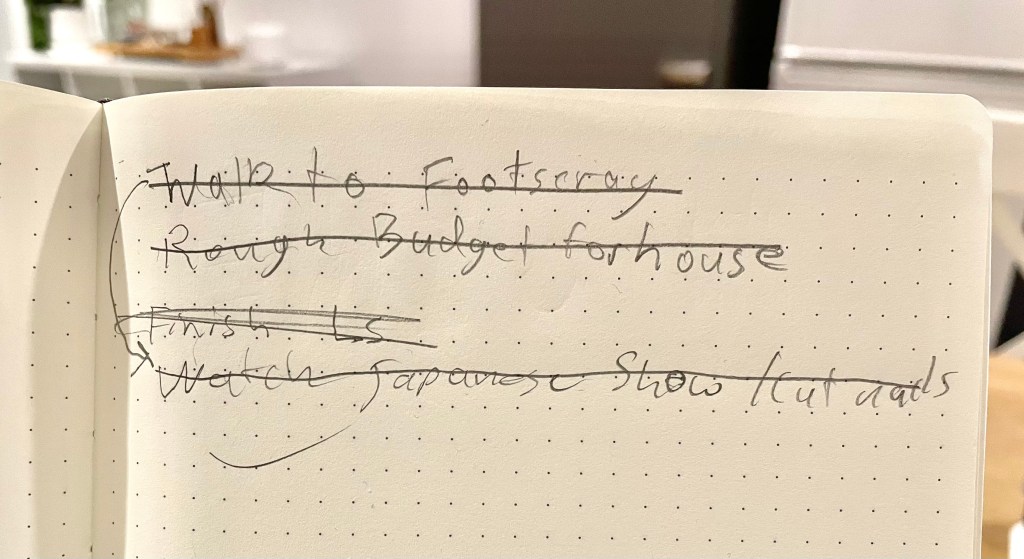 Walk to Footscray
Rough Budget for house
Finish Ls
Watch Japanese Show / Cut nails